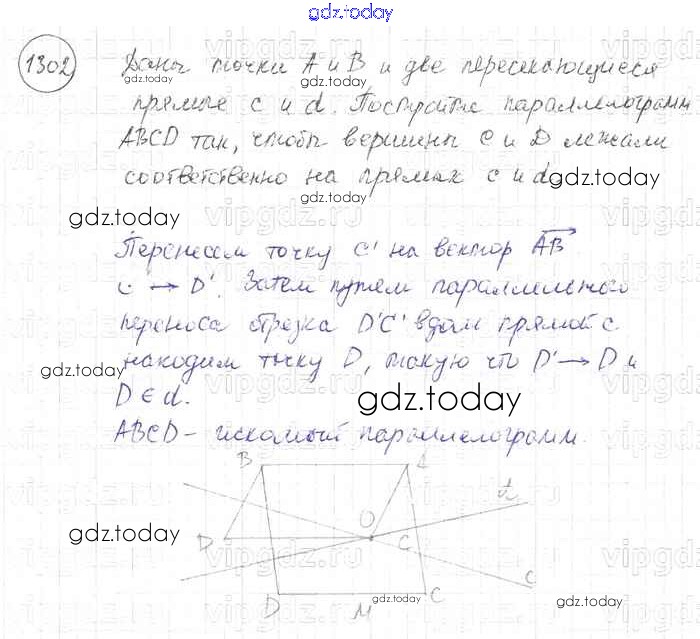 gdz.today
1302 Даны точки А и В и две пересекающиеся
прямые c и d. Постройте параллелограмм
ABCD так, чтобы вершины C и D лежали
соответственно на прямых c и d.
gdz.today
gdz.today
gdz.today
gdz.today
Перенесем точку C' на вектор AB
C' → D'. Затем путем параллельного
переноса отрезка D'C' вдоль прямой c.
находим точку D, такую что D' → D и
gdz.today
D ∈ d.
gdz.today
ABCD - искомый параллелограмм.
B
d
O
gdz.today
D C
c
gdz.today
gdz.today
D M C
vipgdz.ru